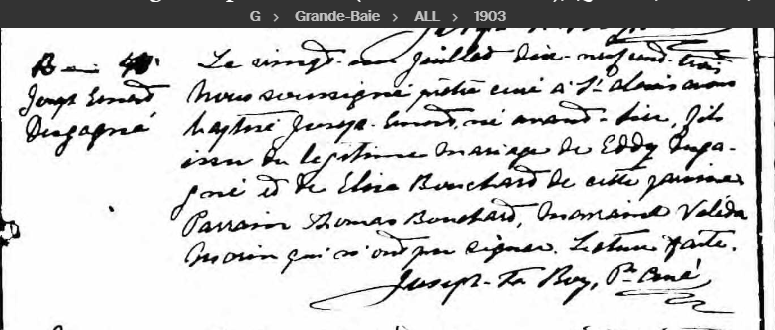 G > Grande-Baie > ALL > 1903
Le vingt-un juillet dix-neuf cent trois
B
Joseph Emard
Desgagné
nous soussigné prêtre curé à St alexis avons
baptisé Joseph-Emard, né avant-hier, fils
issu du légitime mariage de Eddy Desga-
gné et de Elise Bouchard de cette paroisse
Parrain Thomas Bouchard, marraine Valéda
Morin qui n'ont pu signer. Lecture faite.
Joseph- Roy, Ptre Curé